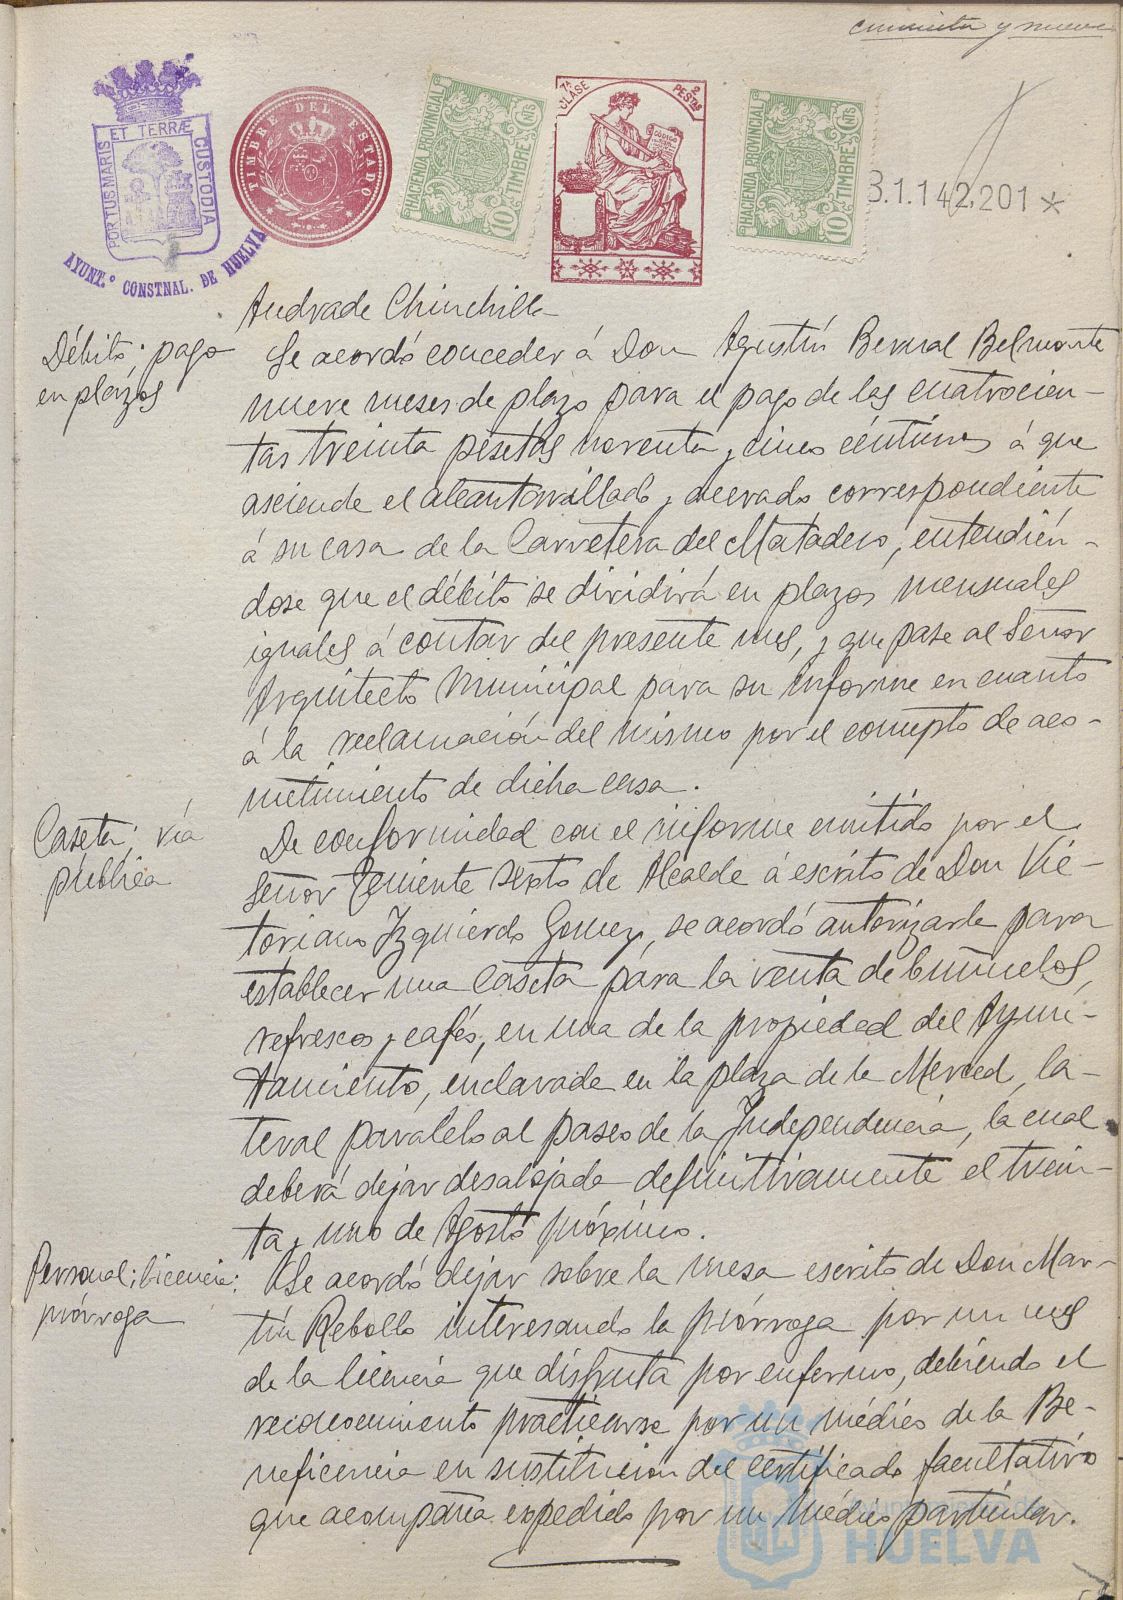 cincuenta y nueve
PORTUS MARIS ET TERRÆ CUSTODIA
AYUNT.º CONSTNAL. DE HUELVA
TIMBRE DEL ESTADO
HACIENDA PROVINCIAL
10 CTS
TIMBRE
7ª CLASE
2 PESETAS
CODIGO
HACIENDA PROVINCIAL
10 CTS
TIMBRE
B.1.142.201 *
Andrade Chinchilla
Débito; pago
en plazos
Se acordó conceder á Don Agustín Bernal Belmonte
nueve meses de plazo para el pago de las cuatrocien-
tas treinta pesetas noventa y cinco céntimos á que
asciende el alcantarillado y acerado correspondiente
á su casa de la Carretera del Matadero, entendién-
dose que el débito se dividirá en plazos mensuales
iguales á contar del presente mes, y que pase al Señor
Arquitecto Municipal para su informe en cuanto
á la reclamación del mismo por el concepto de aco-
metimiento de dicha casa.
Caseta; vía
pública
De conformidad con el informe emitido por el
Señor Teniente sexto de Alcalde á escrito de Don Vic-
toriano Izquierdo Gomez, se acordó autorizarle para
establecer una caseta para la venta de buñuelos,
refrescos y cafés, en una de la propiedad del Ayun-
tamiento, enclavada en la plaza de la Merced, la-
teral paralelo al paseo de la Independencia, la cual
deberá dejar desalojada definitivamente el trein-
ta y uno de Agosto próximo.
Personal; licencia;
prórroga
Se acordó dejar sobre la mesa escrito de Don Mar-
tín Rebollo interesando la prórroga por un mes
de la licencia que disfruta por enfermo, debiendo el
reconocimiento practicarse por un médico de la Be-
neficencia en sustitución del certificado facultativo
que acompaña expedido por un médico particular.
Ayuntamiento de
HUELVA